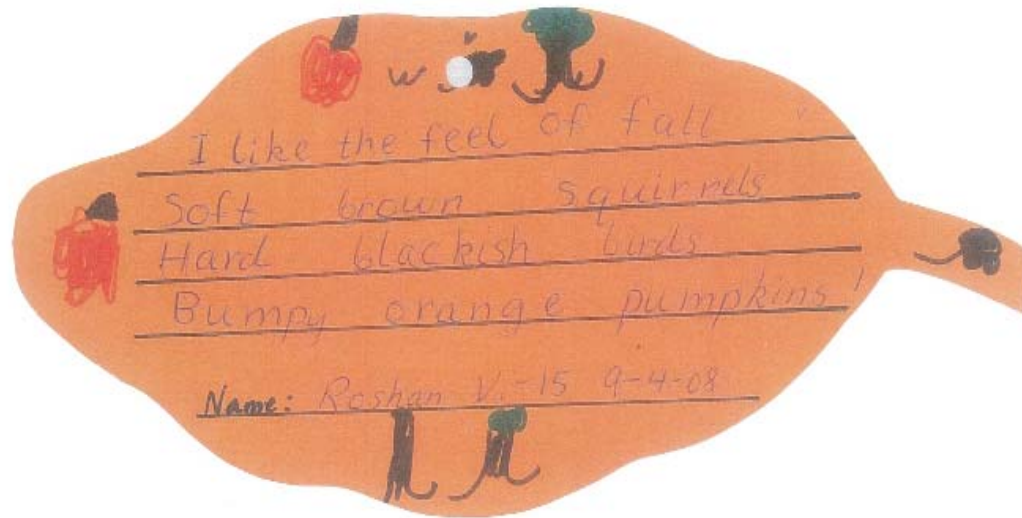 I like the feel of fall
Soft brown squirrels
Hard blackish birds
Bumpy orange pumpkins!
Name: Roshan V.-15 9-4-08